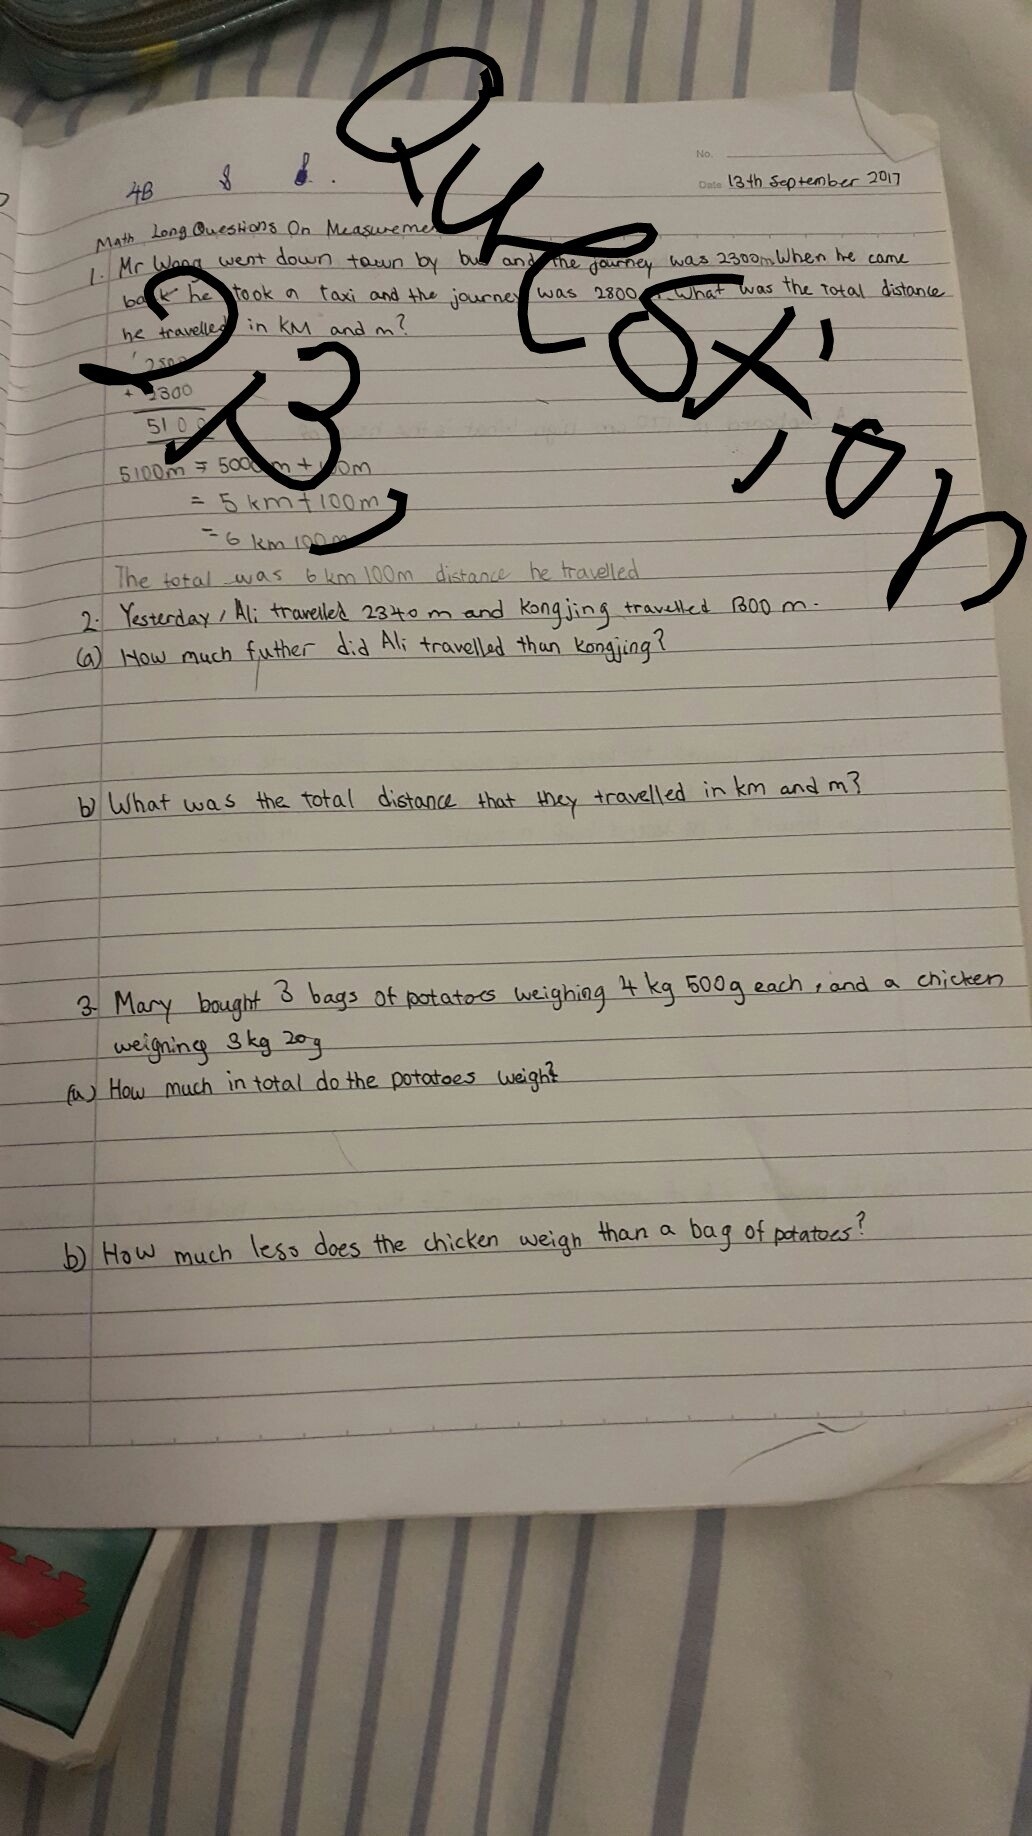 No.
Date 13th September 2017
4B 8 8.
Math Long Questions On Measurement
1. Mr Wong went down town by bus and the journey was 2300m. When he came
back he took a taxi and the journey was 2800 . What was the total distance
he travelled in KM and m?
+ 2300
5100
5100m = 5000m + 100m
= 5 km + 100m
= 6 km 100m
The total was 6 km 100m distance he travelled
2. Yesterday, Ali travelled 2340 m and Kongjing travelled 1300 m.
(a) How much futher did Ali travelled than kongjing?
b) What was the total distance that they travelled in km and m?
3. Mary bought 3 bags of potatoes weighing 4 kg 500g each, and a chicken
weigning 3kg 20g
(a) How much in total do the potatoes weigh?
b) How much less does the chicken weigh than a bag of potatoes?
Question
2, 3,